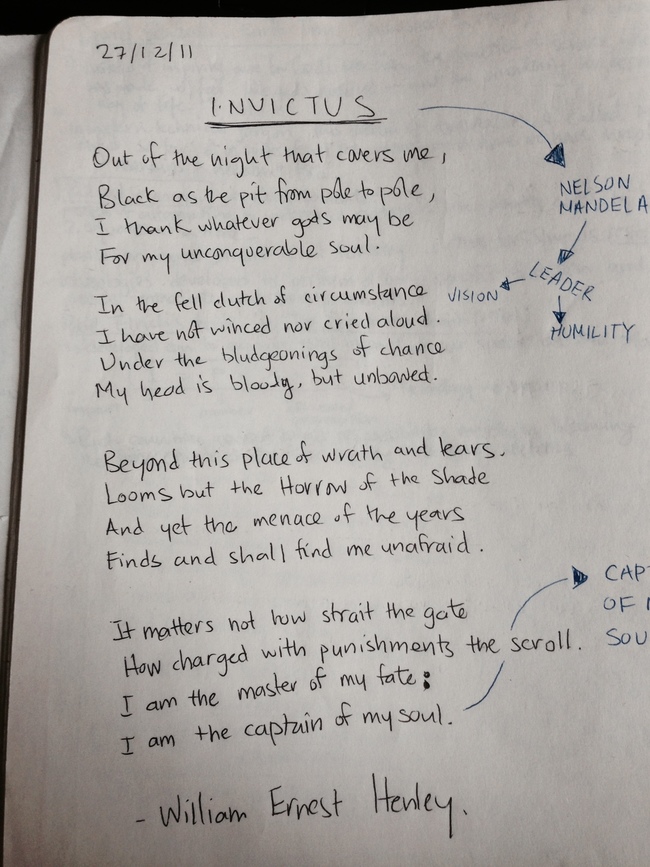 27/12/11
INVICTUS
Out of the night that covers me,
Black as the pit from pole to pole,
I thank whatever gods may be
For my unconquerable soul.
In the fell clutch of circumstance
I have not winced nor cried aloud.
Under the bludgeonings of chance
My head is bloody, but unbowed.
Beyond this place of wrath and tears.
Looms but the Horrow of the Shade
And yet the menace of the years
Finds and shall find me unafraid.
It matters not how strait the gate
How charged with punishments the scroll.
I am the master of my fate:
I am the captain of my soul.
- William Ernest Henley.
NELSON
MANDELA
LEADER
VISION
HUMILITY
CAP
OF
SOU